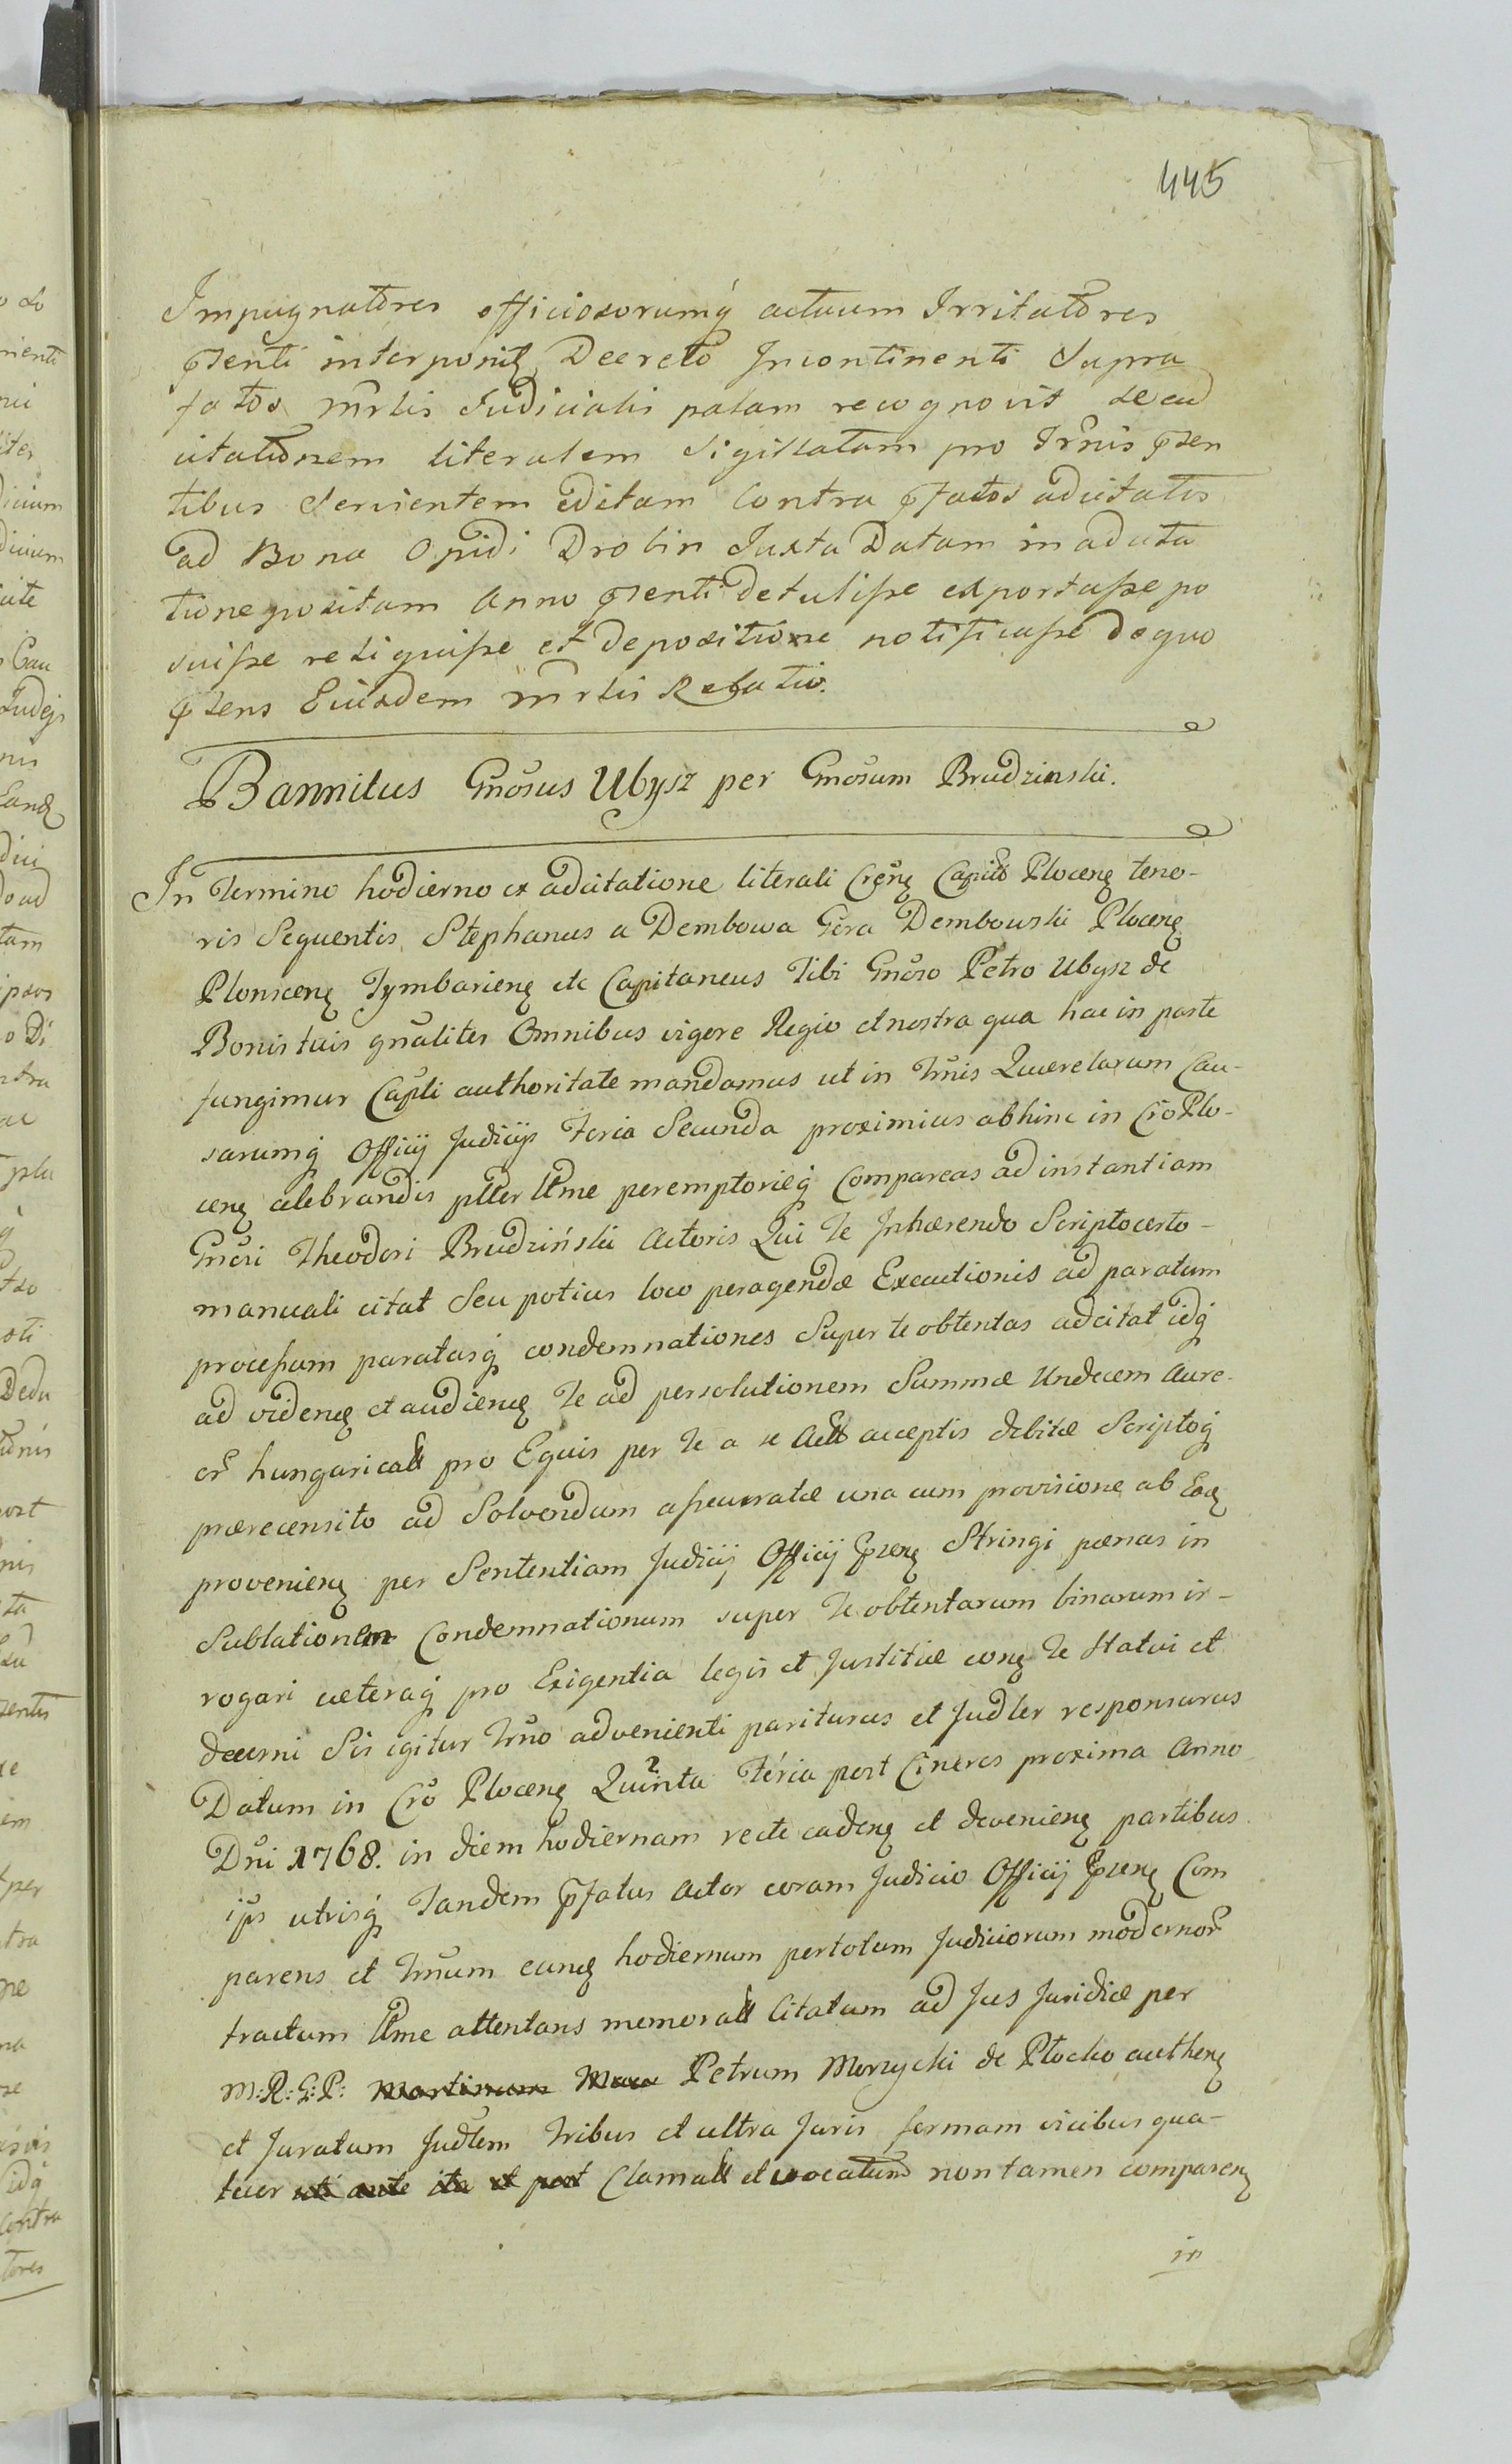 445
Impugnatores officiosorumq́ actuum Irritatores
p̃senti interponiȩ Decreto Incontinenti Supra
fatos Mr̃lis Judicialis palam recognovit se ad
citationem literalem Sigillatam pro Tr̃nis p̃sen
tibus Servientem editam Contra p̃fatos adcitatos
ad Bona Opidi Drobin Juxta Datam in adcita
tione positam Anno p̃senti detulisse exportasse po
suisse reliquisse et depositione notificasse de quo
p̃sens Eiusdem Mr̃lis Relatio.
Bannitus Gnõsus Ubysz per Gnõsum Brudzinski.
In Termino hodierno ex adcitatione literali Crẽnȩ Capit̃ Plocenȩ teno-
ris Sequentis, Stephanus a Dembowa Góra Dembowski Plocenȩ
Plonscenȩ Tymbarienȩ etc Capitaneus Tibi Gnõso Petro Ubysz de
Bonis tuis gñaliter Omnibus vigore Regio et nostra qua hac in parte
fungimur Cap̃li authoritate mandamus ut in Tm̃is Querelarum Cau-
sarumq́ Officij Judicijs Feria Secunda proximius abhinc in Crõ Plo-
cenȩ celebrandis pl̃ter Lt̃me peremptorieq́ Compareas ad instantiam
Gnõsi Theodori Brudziński Actoris Qui Te Inhærendo Scripto certo-
manuali citat Seu potius loco peragendæ Executionis ad paratum
processum paratasq́ condemnationes Super te obtentas adcitat idq́
ad videnȩ et audienȩ Te ad persolutionem Summæ Undecem Aure-
or̃ hungaricall pro Equis per Te a se Acll acceptis debitæ Scriptoq́
prærecensito ad Solvendum assecuratæ una cum provisione ab Eaȩ
provenienȩ per Sententiam Judicij Officij p̃senȩ Stringi pœnas in
Sublationem Condemnationum super Te obtentarum binarum ir-
rogari cæteraq́ pro Exigentia legis et Justitiæ conȩ Te Statui et
decerni Sis igitur Tm̃o advenienti pariturus et Judl̃er responsurus
Datum in Crõ Plocenȩ Quinta Féria post Cineres proxima Anno
Dñi 1768. in diem hodiernam recte cadenȩ et devenienȩ partibus
ip̃s utrisq́ Tandem p̃fatus Actor coram Judicio Officij p̃senȩ Com
parens et Tm̃um eunȩ hodiernum pertotum Judiciorum modernor̃
tractum Lt̃me attentans memorall Citatum ad Jus Juridicæ per
M:R:G:P: Martinum Petrum Morzycki de Płocko authenȩ
et Juratum Judl̃em Tribus et ultra Juris formam vicibus qua-
tuor uti ante ita et post Clamall et vocatum non tamen comparenȩ
in